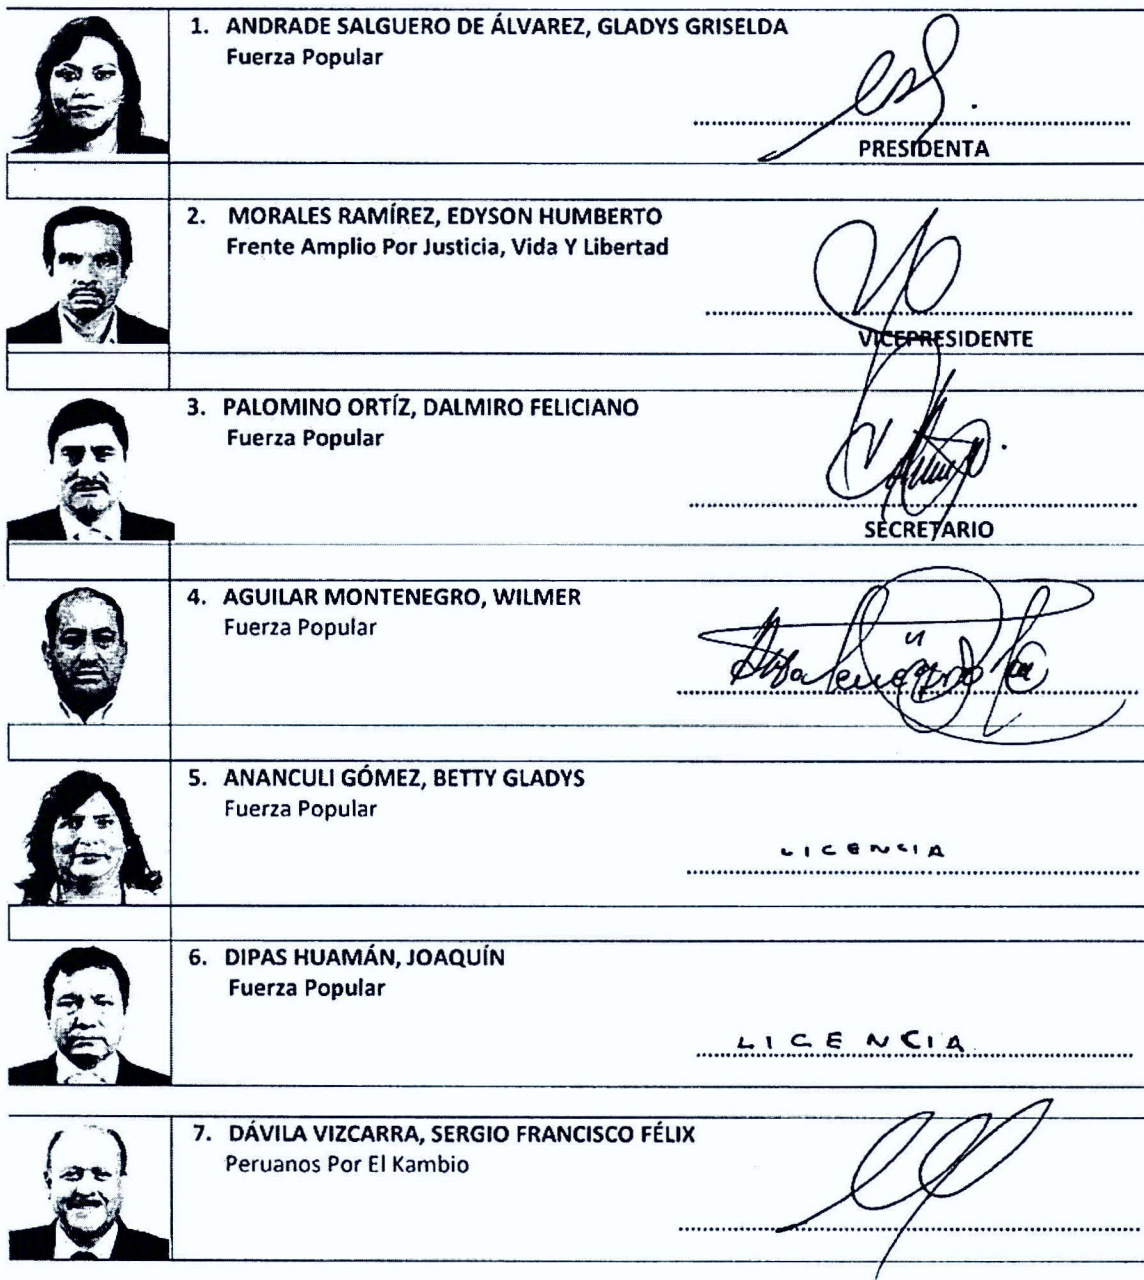 1. ANDRADE SALGUERO DE ÁLVAREZ, GLADYS GRISELDA
Fuerza Popular
PRESIDENTA
2. MORALES RAMÍREZ, EDYSON HUMBERTO
Frente Amplio Por Justicia, Vida Y Libertad
VICEPRESIDENTE
3. PALOMINO ORTÍZ, DALMIRO FELICIANO
Fuerza Popular
SECRETARIO
4. AGUILAR MONTENEGRO, WILMER
Fuerza Popular
5. ANANCULI GÓMEZ, BETTY GLADYS
Fuerza Popular
LICENCIA
6. DIPAS HUAMÁN, JOAQUÍN
Fuerza Popular
LICENCIA
7. DÁVILA VIZCARRA, SERGIO FRANCISCO FÉLIX
Peruanos Por El Kambio